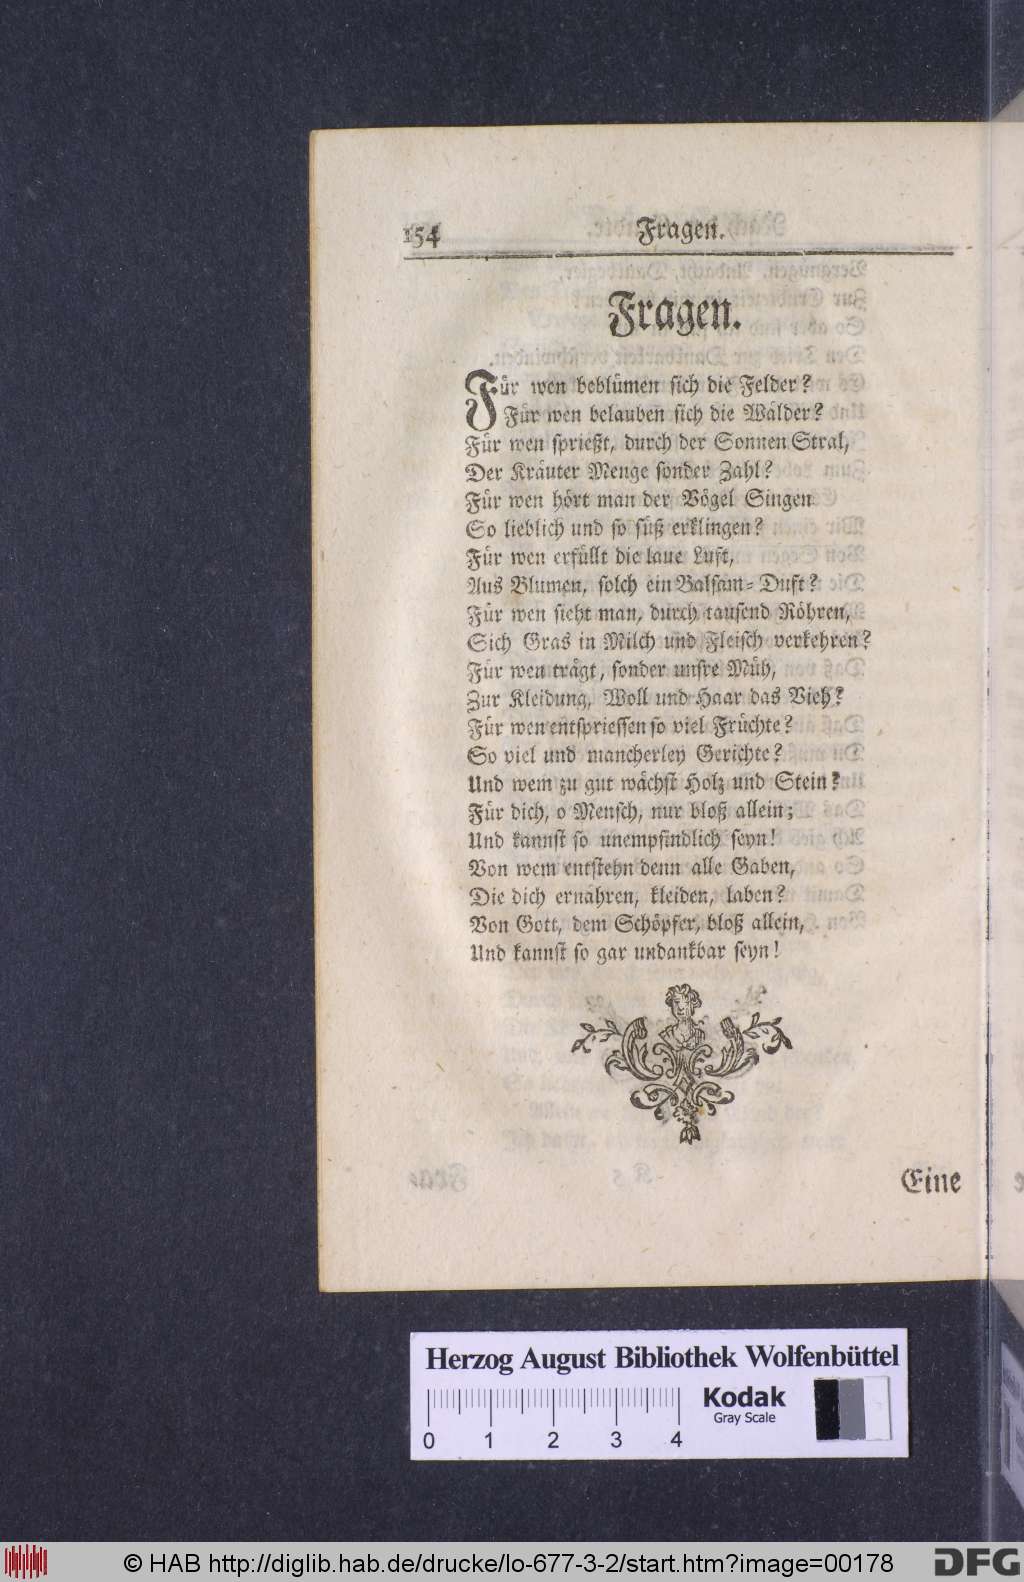 154 Fragen.
Fragen.
Für wen beblümen sich die Felder?
Für wen belauben sich die Wälder?
Für wen sprießt, durch der Sonnen Stral,
Der Kräuter Menge sonder Zahl?
Für wen hört man der Vögel Singen
So lieblich und so süß erklingen?
Für wen erfüllt die laue Luft,
Aus Blumen, solch ein Balsam-Duft?
Für wen sieht man, durch tausend Röhren,
Sich Gras in Milch und Fleisch verkehren?
Für wen trägt, sonder unsre Müh,
Zur Kleidung, Woll und Haar das Vieh?
Für wen entspriessen so viel Früchte?
So viel und mancherley Gerichte?
Und wem zu gut wächst Holz und Stein?
Für dich, o Mensch, nur bloß allein;
Und kannst so unempfindlich seyn!
Von wem entstehn denn alle Gaben,
Die dich ernähren, kleiden, laben?
Von Gott, dem Schöpfer, bloß allein,
Und kannst so gar undankbar seyn!
Eine
Herzog August Bibliothek Wolfenbüttel
Kodak
Gray Scale
0 1 2 3 4
© HAB http://diglib.hab.de/drucke/lo-677-3-2/start.htm?image=00178
DFG